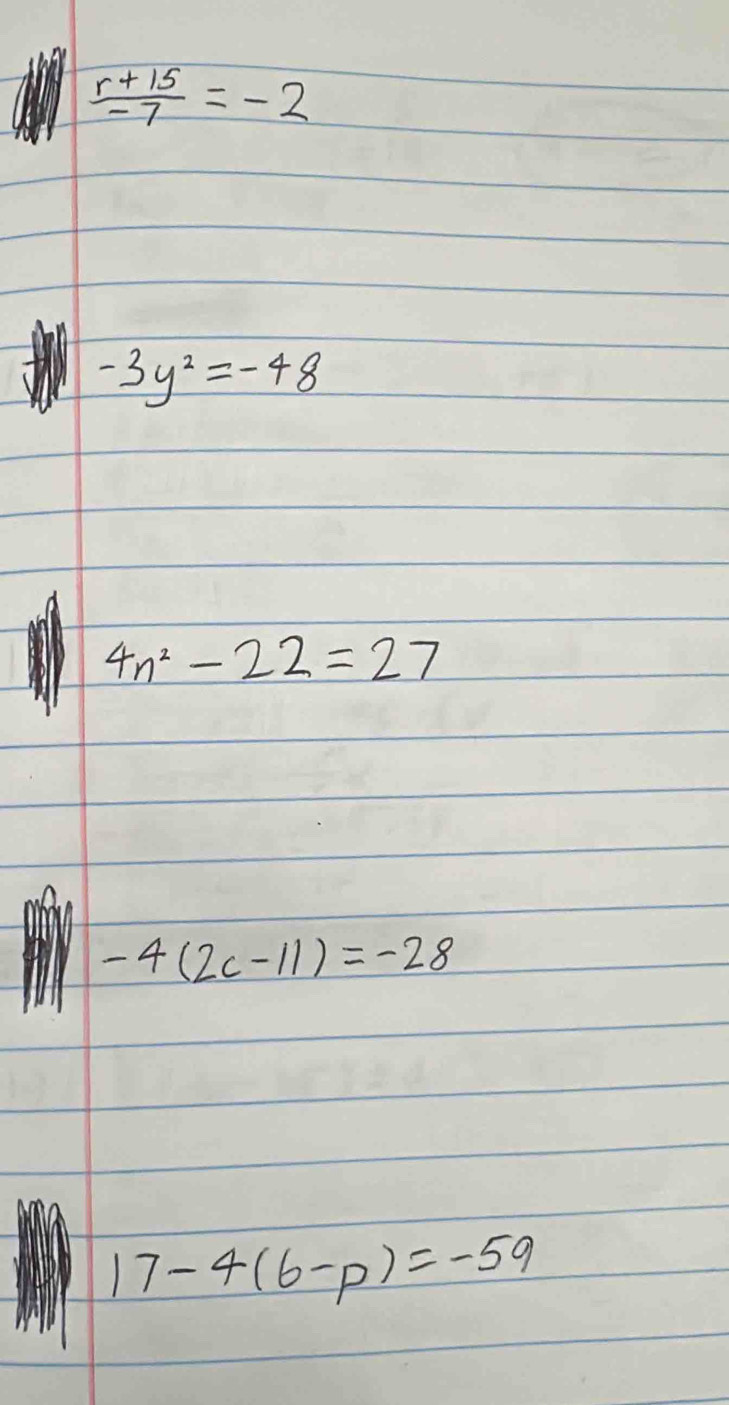 r + 15 / -7 = -2
-3y² = -48
4n² - 22 = 27
-4(2c - 11) = -28
17 - 4(6 - p) = -59